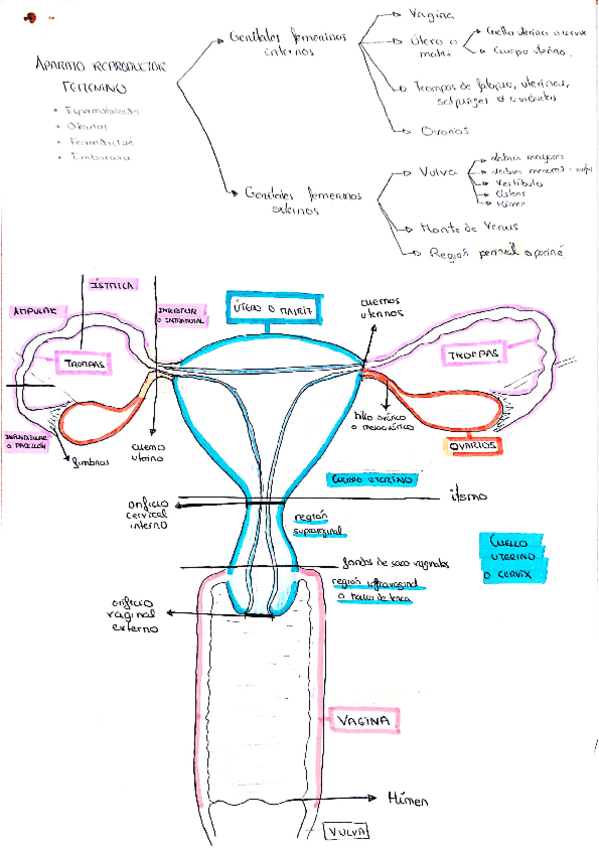 APARATO REPRODUCTOR
FEMENINO
• Espermatozoides
• Ovarios
• Fecundación
• Embarazo
Genitales femeninos
internos
Vagina
Útero o
matriz
Cuello uterino o cervix
Cuerpo uterino.
Trompas de falopio, uterinas,
salpinges o oviductos
Ovarios
Genitales femeninos
externos
Vulva
labios mayores
labios menores
Vestíbulo
Clítoris
Himen
Monte de Venus
Región perineal o periné
ÍSTMICA
AMPULAR
TROMPAS
INFUNDIBULAR
O PABELLÓN
fimbrias
cuerno
uterino
ÚTERO O MATRIZ
cuernos
uterinos
TROMPAS
hilio ovárico
o mesoovárico
OVARIOS
CUERPO UTERINO
itsmo
orificio
cervical
interno
región
supravaginal
CUELLO
UTERINO
O CERVIX
fondos de saco vaginales
región intravaginal
o hocico de tenca
orificio
vaginal
externo
VAGINA
Himen
VULVA